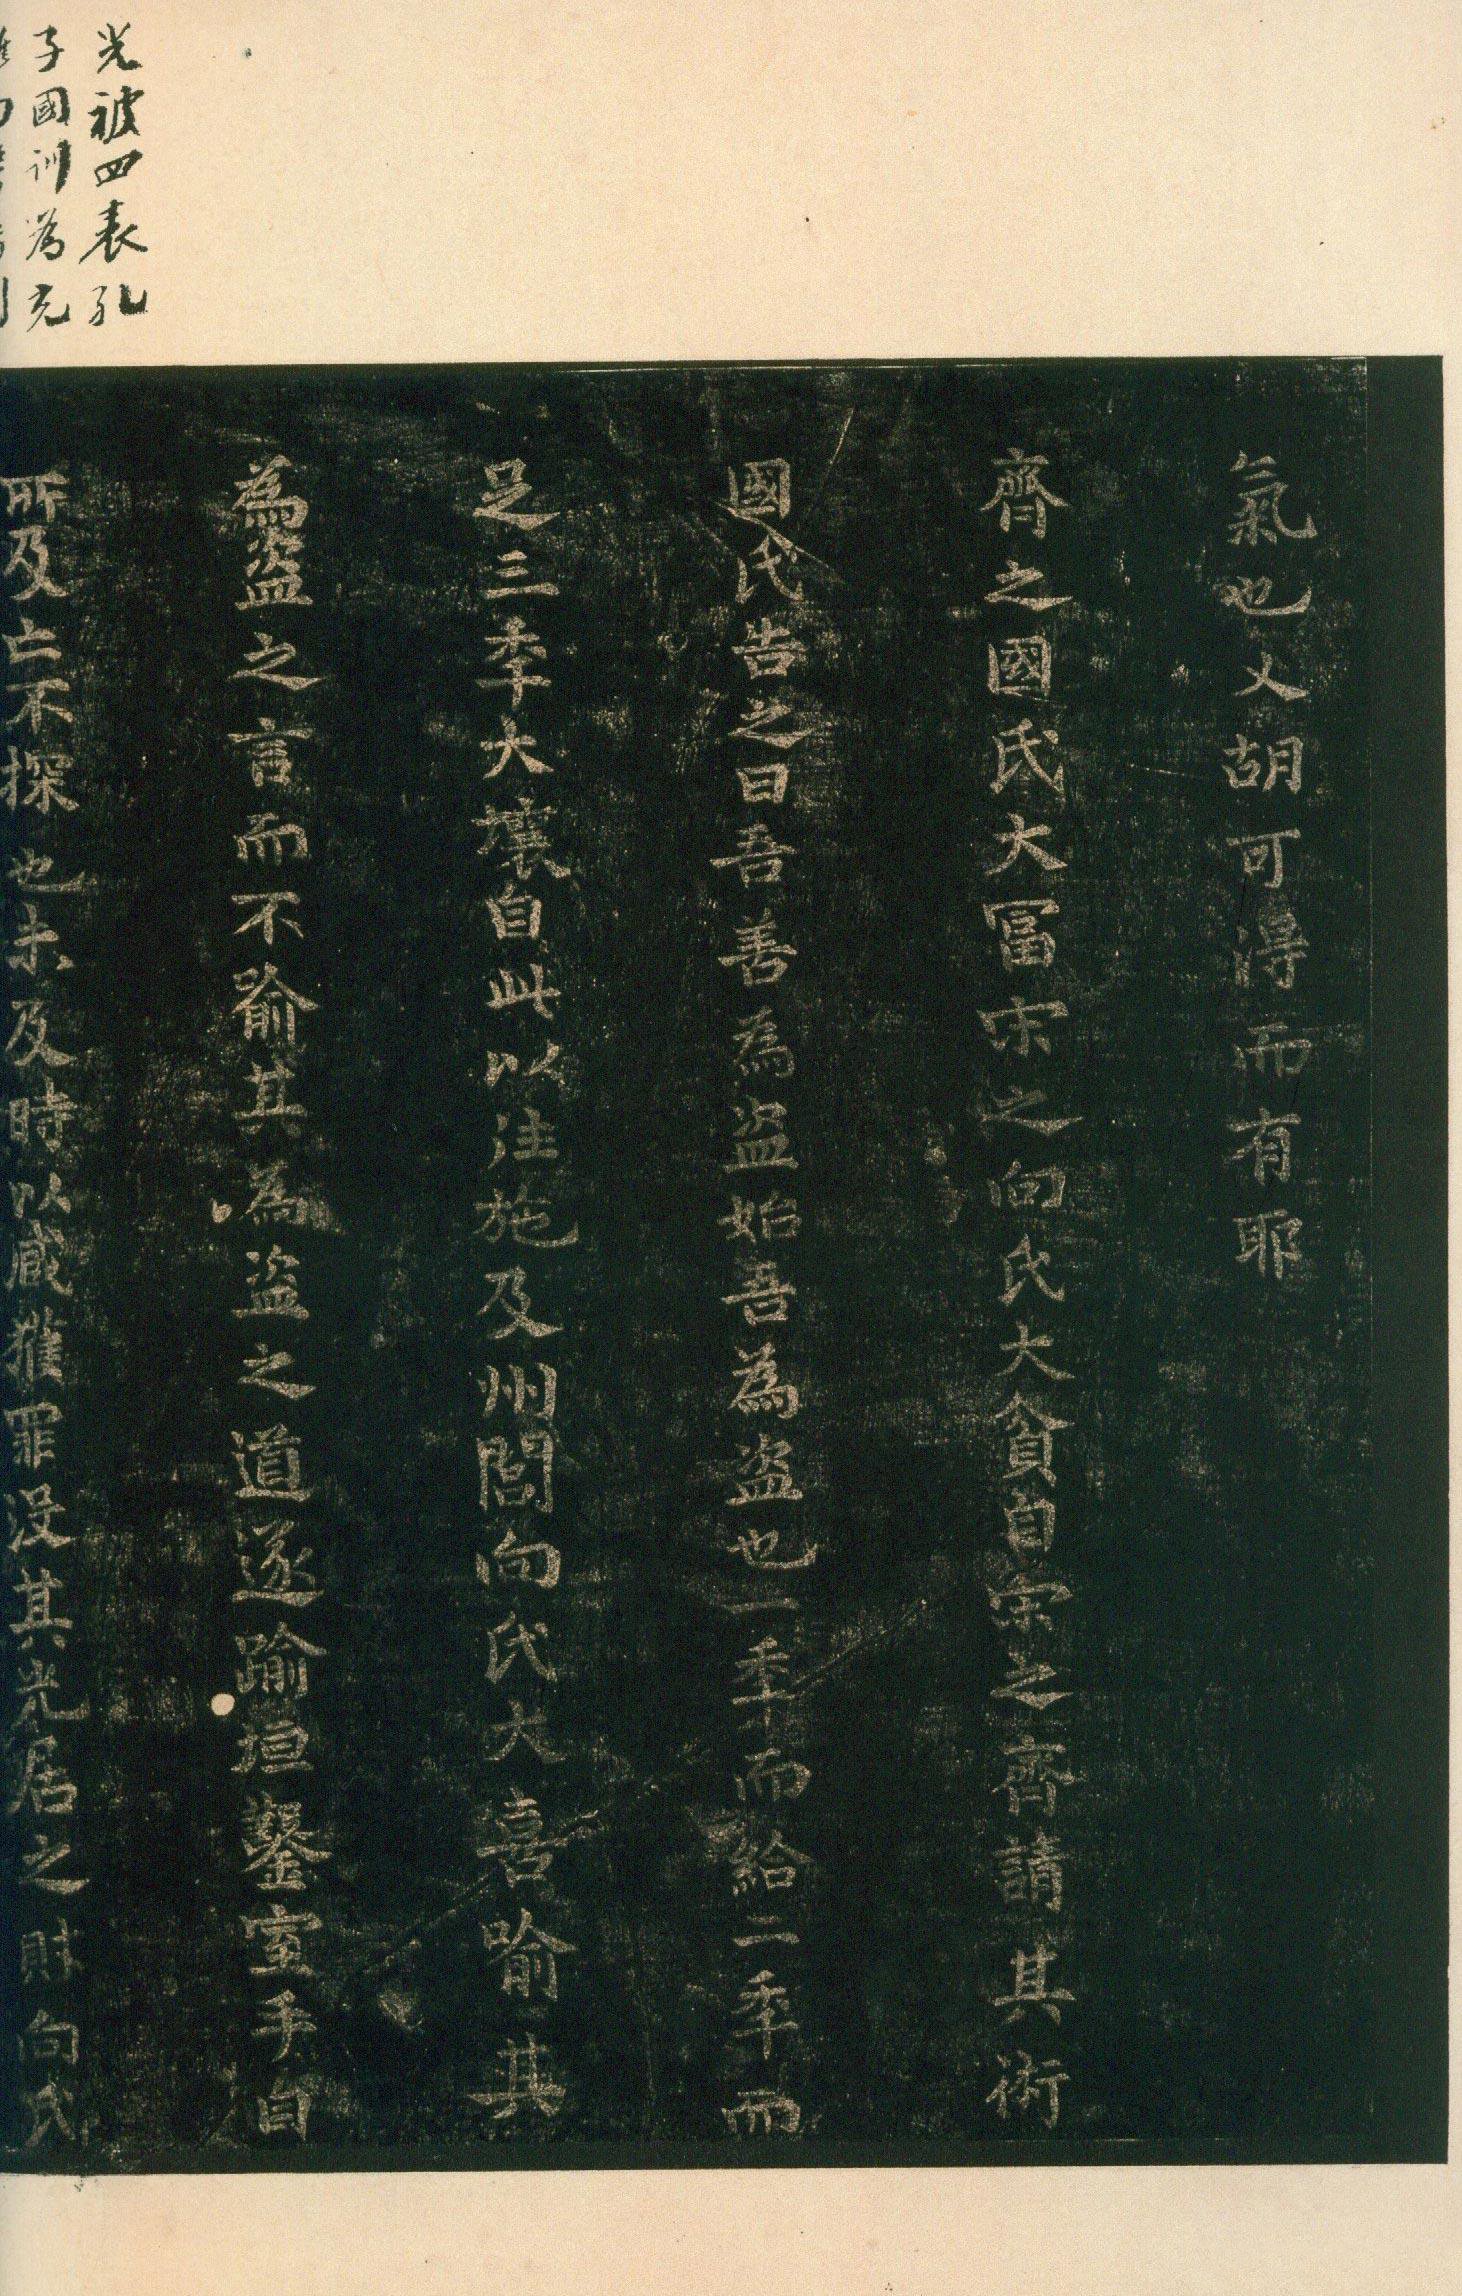 光被四表孔
子國訓為充
氣也乆胡可淂而有耶
齊之國氏大冨宋之向氏大貧自宋之齊請其術
國氏告之曰吾善為盗始吾為盗也一秊而給二秊而
足三秊大壤自此以往施及州閭向氏大喜喻其
為盗之言而不喻其為盗之道遂踰垣鑿室手自
所及亡不探也未及時以臧獲罪没其光居之財向氏